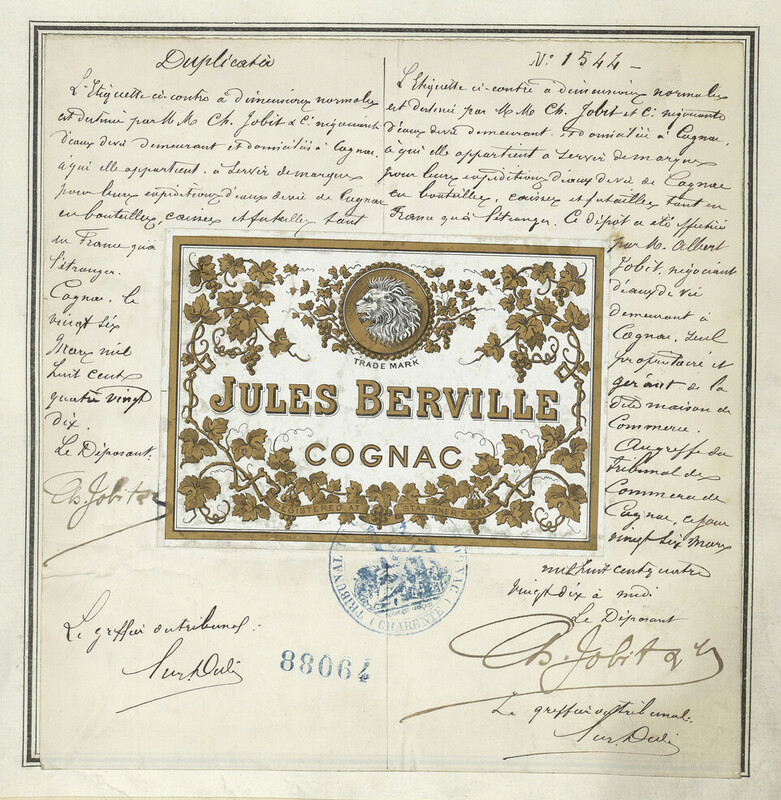 Duplicata
L'Etiquette ci-contre à dimensions normales
est destinée par M M Ch. Jobit & Cie négociants
d'eaux de vie demeurant et domiciliés à Cognac,
à qui elle appartient, à servir de marques
pour leurs expéditions d'eaux de vie de Cognac
en bouteilles, caisses et futailles tant
en France qu'à
l'étranger.
Cognac, le
vingt six
Mars mil
huit cent
quatre vingt
dix.
Le Déposant:
Ch. Jobit & Cie
Le greffier du tribunal:
N° 1544 -
L'Etiquette ci-contre à dimensions normales
est destinée par M M Ch. Jobit et Cie négociants
d'eaux de vie demeurant et domiciliés à Cognac,
à qui elle appartient à servir de marques
pour leurs expéditions d'eaux de vie de Cognac
en bouteilles, caisses et futailles tant en
France qu'à l'étranger. Ce dépôt a été effectué
par M. Albert
Jobit, négociant
d'eaux de vie
demeurant à
Cognac, seul
propriétaire et
gérant de la
dite maison de
Commerce.
Au greffe du
Tribunal de
Commerce de
Cognac, ce jour
vingt six Mars
mil huit cent quatre
vingt dix à midi
Le Déposant
Ch. Jobit & Cie
Le greffier du tribunal:
TRADE MARK
JULES BERVILLE
COGNAC
REGISTERED AT STATIONER'S HALL
TRIBUNAL
COGNAC
(CHARENTE)
88064